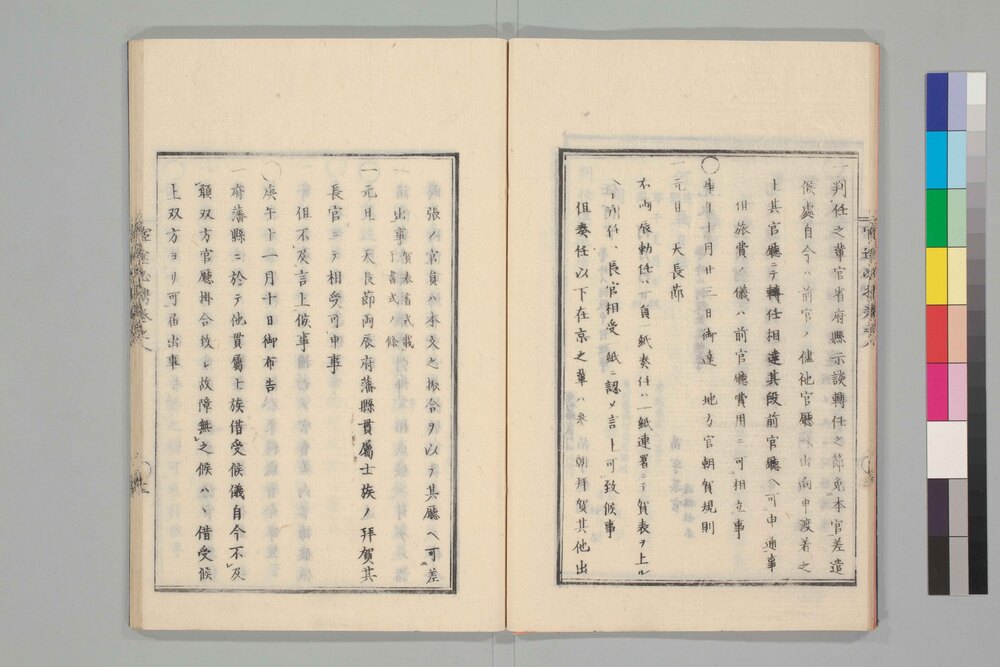 一判任之輩官省府縣示談轉任之節免本官差遣
候處自今ハ前官ノ儘他官廳ヘ出向申渡着之
上其官廳ニテ轉任相達其段前官廳ヘ可申通事
但旅費ノ儀ハ前官廳費用ニ可相立事
庚午十月廿三日御達 地方官朝賀規則
一元日 天長節
本両辰勅任ハ一員一紙奏任ハ一紙連署ニテ賀表ヲ上ル
ヘ判任ハ長官相受一紙ニ認メ言上可致候事
但奏任以下在京之輩ハ参 朝拜賀其他出
張ノ官員ハ本文之振合ヲ以テ其廳ヘ可差
出事
一元旦天長節両辰府藩縣貫屬士族ノ拜賀其
長官ニテ相受可申事
但不及言上候事
庚午十一月十日御布告
一府藩縣ニ於テ他貫屬士族借受候儀自今不及
願双方官廳掛合致シ故障無之候ハヽ借受候
上双方ヨリ可届出事